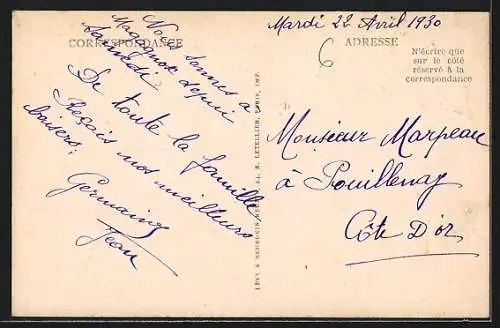 Mardi 22 Avril 1930
CORRESPONDANCE
Nous sommes a
depui
Samedi
De toute la famille
Reçois nos meilleurs
baisers.
Germaine
Jean
LÉVY & NEURDEIN RÉUNIS, 44, R. LETELLIER, PARIS, IMP.
6
ADRESSE
N'écrire que
sur le côté
réservé à la
correspondance
Monsieur Marpeau
à Pouillenay
Côte D'or